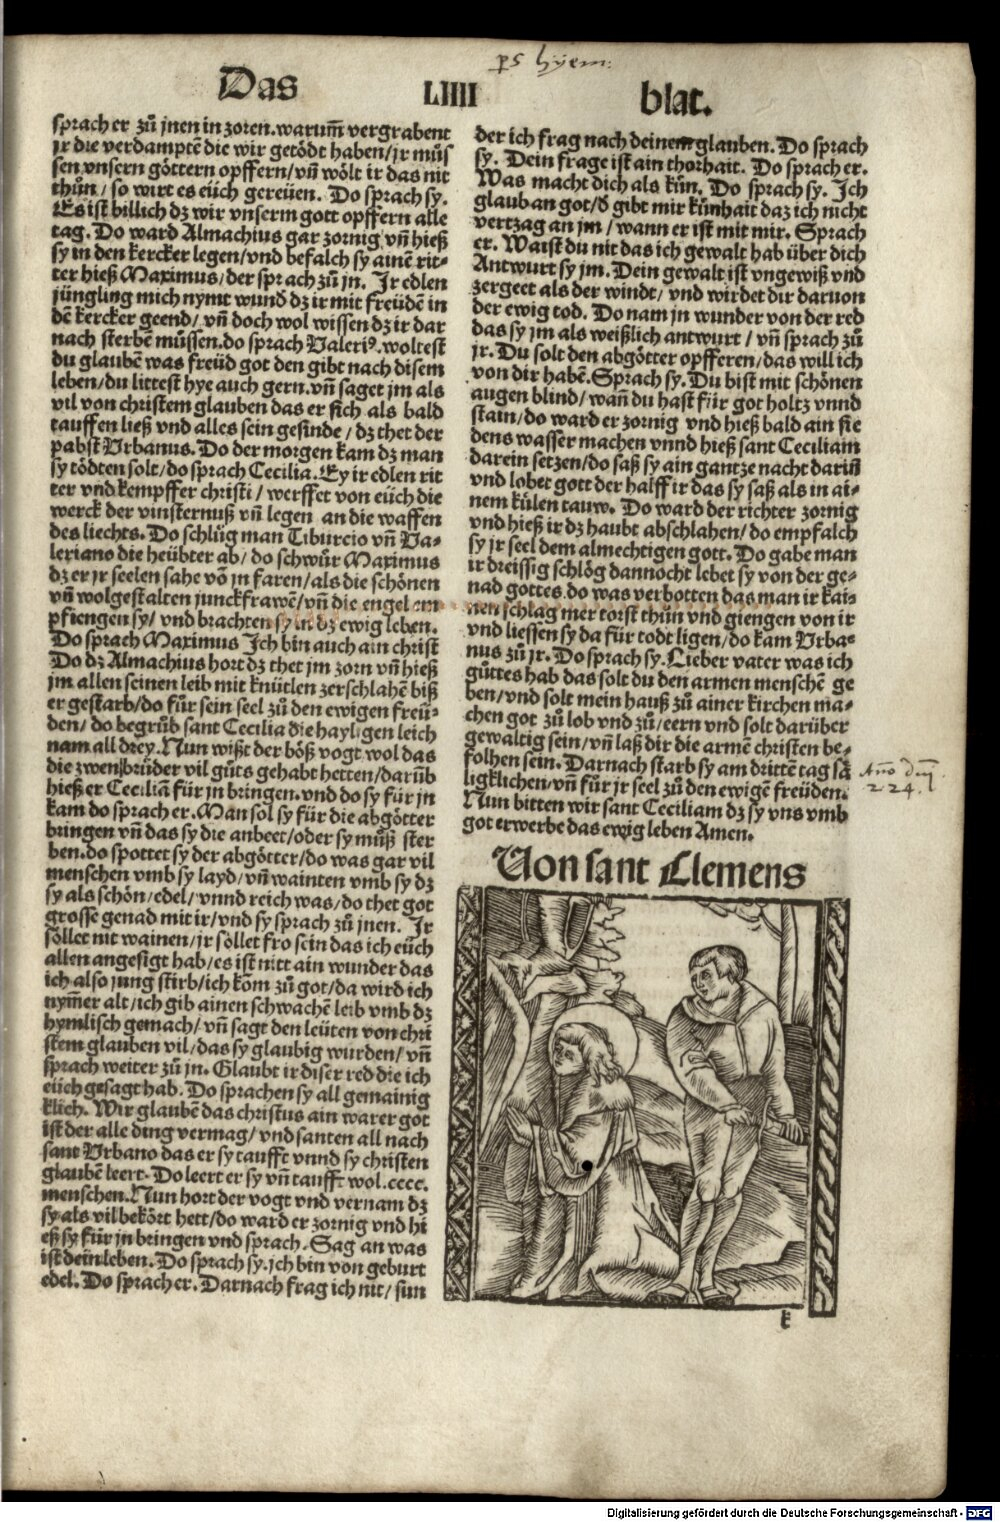 ps hyem:
Das LIIII blat.
sprach er zů jnen in zoren. warum̃ vergrabent
jr die verdamptẽ die wir getödt haben/ jr můs
sen vnsern göttern opffern/ vñ wölt ir das nit
thůn/ so wirt es eüch gereüen. Do sprach sy.
Es ist billich dz wir vnserm gott opffern alle
tag. Do ward Almachius gar zornig vñ hieß
sy in den kercker legen/ vnd befalch sy ainẽ rit-
ter hieß Maximus/ der sprach zů jn. Ir edlen
jüngling mich nymt wund̕ dz ir mit freüdẽ in
dẽ kercker geend/ vñ doch wol wissen dz ir dar
nach sterbẽ müssen. do sprach Valeri⁹. woltest
du glaubẽ was freüd got den gibt nach disem
leben/ du littest hye auch gern. vñ saget jm als
vil von christem glauben das er sich als bald
tauffen ließ vnd alles sein gesinde/ dz thet der
pabst Vrbanus. Do der morgen kam dz man
sy tödten solt/ do sprach Cecilia. Ey ir edlen rit
ter vnd kempffer christi/ werffet von eüch die
werck der vinsternuß vñ legen an die waffen
des liechts. Do schlůg man Tiburcio vñ Va-
leriano die heübter ab/ do schwůr Maximus
dz er jr seelen sahe võ jn faren/ als die schönen
vñ wolgestalten junckfrawẽ/ vñ die engel em
pfiengen sy/ vnd brachten sy in dz ewig leben.
Do sprach Maximus Ich bin auch ain christ
Do dz Almachius hort dz thet jm zorn vñ hieß
jm allen seinen leib mit knütlen zerschlahẽ biß
er gestarb/ do fůr sein seel zů den ewigen freü-
den/ do begrůb sant Cecilia die hayligen leich
nam all drey. Nun wißt der böß vogt wol das
die zwen brüder vil gůts gehabt hetten/ darũb
hieß er Ceciliã für jn bringen. vnd do sy für jn
kam do sprach er. Man sol sy für die abgötter
bringen vñ das sy die anbeet/ oder sy můß ster
ben. do spottet sy der abgötter/ do was gar vil
menschen vmb sy layd/ vñ wainten vmb sy dz
sy als schön/ edel/ vnnd reich was/ do thet got
grosse genad mit ir/ vnd sy sprach zů jnen. Ir
söllet nit wainen/ jr söllet fro sein das ich eüch
allen angesigt hab/ es ist nitt ain wunder das
ich also jung stirb/ ich kom zů got/ da wird ich
nym̃er alt/ ich gib ainen schwachẽ leib vmb dz
hymlisch gemach/ vñ sagt den leüten von chri
stem glauben vil/ das sy glaubig wurden/ vñ
sprach weiter zů jn. Glaubt ir diser red die ich
eüch gesagt hab. Do sprachen sy all gemainig
klich. Wir glaubẽ das christus ain warer got
ist der alle ding vermag/ vnd santen all nach
sant Vrbano das er sy taufft vnnd sy christen
glaubẽ leert. Do leert er sy vñ taufft wol. cccc.
menschen. Nun hort der vogt vnd vernam dz
sy als vil bekört hett/ do ward er zornig vnd hi
eß sy für jn bringen vnd sprach. Sag an was
ist dein leben. Do sprach sy. jch bin von geburt
edel. Do sprach er. Darnach frag ich nit/ sun
der ich frag nach deinem glauben. Do sprach
sy. Dein frage ist ain thorhait. Do sprach er.
Was macht dich als kün. Do sprach sy. Ich
glaub an got/ d̕ gibt mir künhait daz ich nicht
vertzag an jm/ wann er ist mit mir. Sprach
er. Waist du nit das ich gewalt hab über dich
Antwurt sy jm. Dein gewalt ist vngewiß vnd
zergeet als der windt/ vnd wirdet dir daruon
der ewig tod. Do nam jn wunder von der red
das sy jm als weißlich antwurt/ vñ sprach zů
jr. Du solt den abgötter opfferen/ das will ich
von dir habẽ. Sprach sy. Du bist mit schönen
augen blind/ wañ du hast für got holtz vnnd
stain/ do ward er zornig vnd hieß bald ain sie
dens wasser machen vnnd hieß sant Ceciliam
darein setzen/ do saß sy ain gantze nacht dariñ
vnd lobet gott der halff ir das sy saß als in ai-
nem külen tauw. Do ward der richter zornig
vnd hieß ir dz haubt abschlahen/ do empfalch
sy jr seel dem almechtigen gott. Do gabe man
ir dreissig schlög dannocht lebet sy von der ge-
nad gottes. do was verbotten das man ir kai-
nen schlag mer torst thůn vnd giengen von ir
vnd liessen sy da für todt ligen/ do kam Vrba-
nus zů jr. Do sprach sy. Lieber vater was ich
gůttes hab das solt du den armen menschẽ ge
ben/ vnd solt mein hauß zů ainer kirchen ma-
chen got zů lob vnd zů/ eern vnd solt darüber
gewaltig sein/ vñ laß dir die armẽ christen be-
folhen sein. Darnach starb sy am drittẽ tag sã
ligklichen/ vñ fůr jr seel zů den ewigẽ freüden.
Nun bitten wir sant Ceciliam dz sy vns vmb
got erwerbe das ewig leben Amen.
Año dñi
224.
Von sant Clemens
k
Digitalisierung gefördert durch die Deutsche Forschungsgemeinschaft - DFG